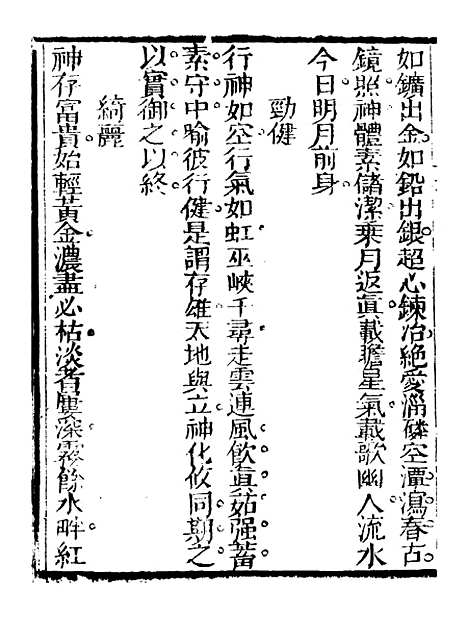 如鑛出金如鉛出銀超心鍊冶絶愛淄磷空潭瀉春古
鏡照神體素儲潔乗月返眞載瞻星氣載歌幽人流水
今日明月前身
勁健
行神如空行氣如虹巫峽千尋走雲連風飲眞茹强蓄
素守中喻彼行健是謂存雄天地與立神化攸同期之
以實御之以終
綺麗
神存富貴始輕黃金濃盡必枯淡者屢深霧餘水畔紅